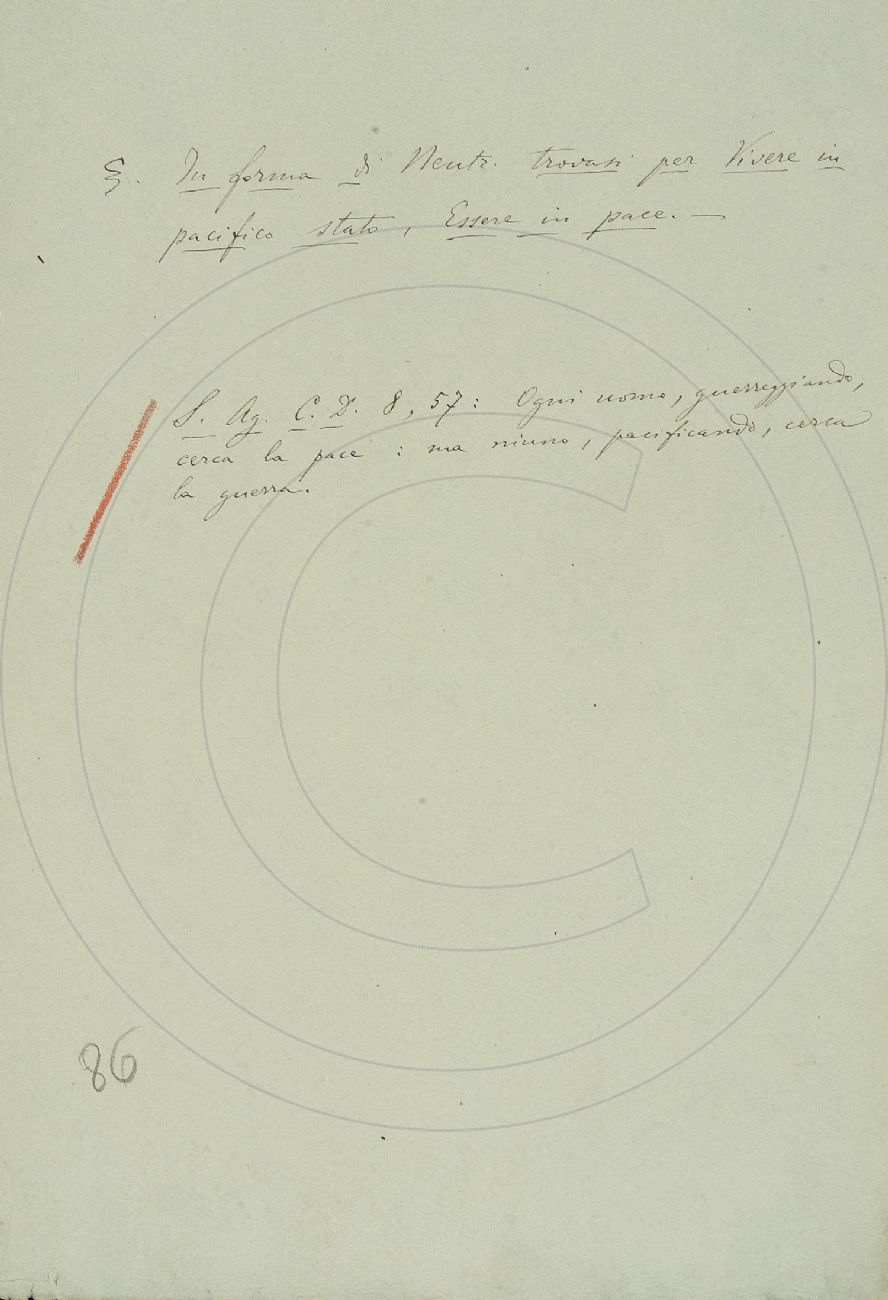 §. In forma di Neutr. trovasi per Vivere in
pacifico stato, Essere in pace. —
S. Ag. C. D. 8, 57: Ogni uomo, guerreggiando,
cerca la pace: ma niuno, pacificando, cerca
la guerra.
86